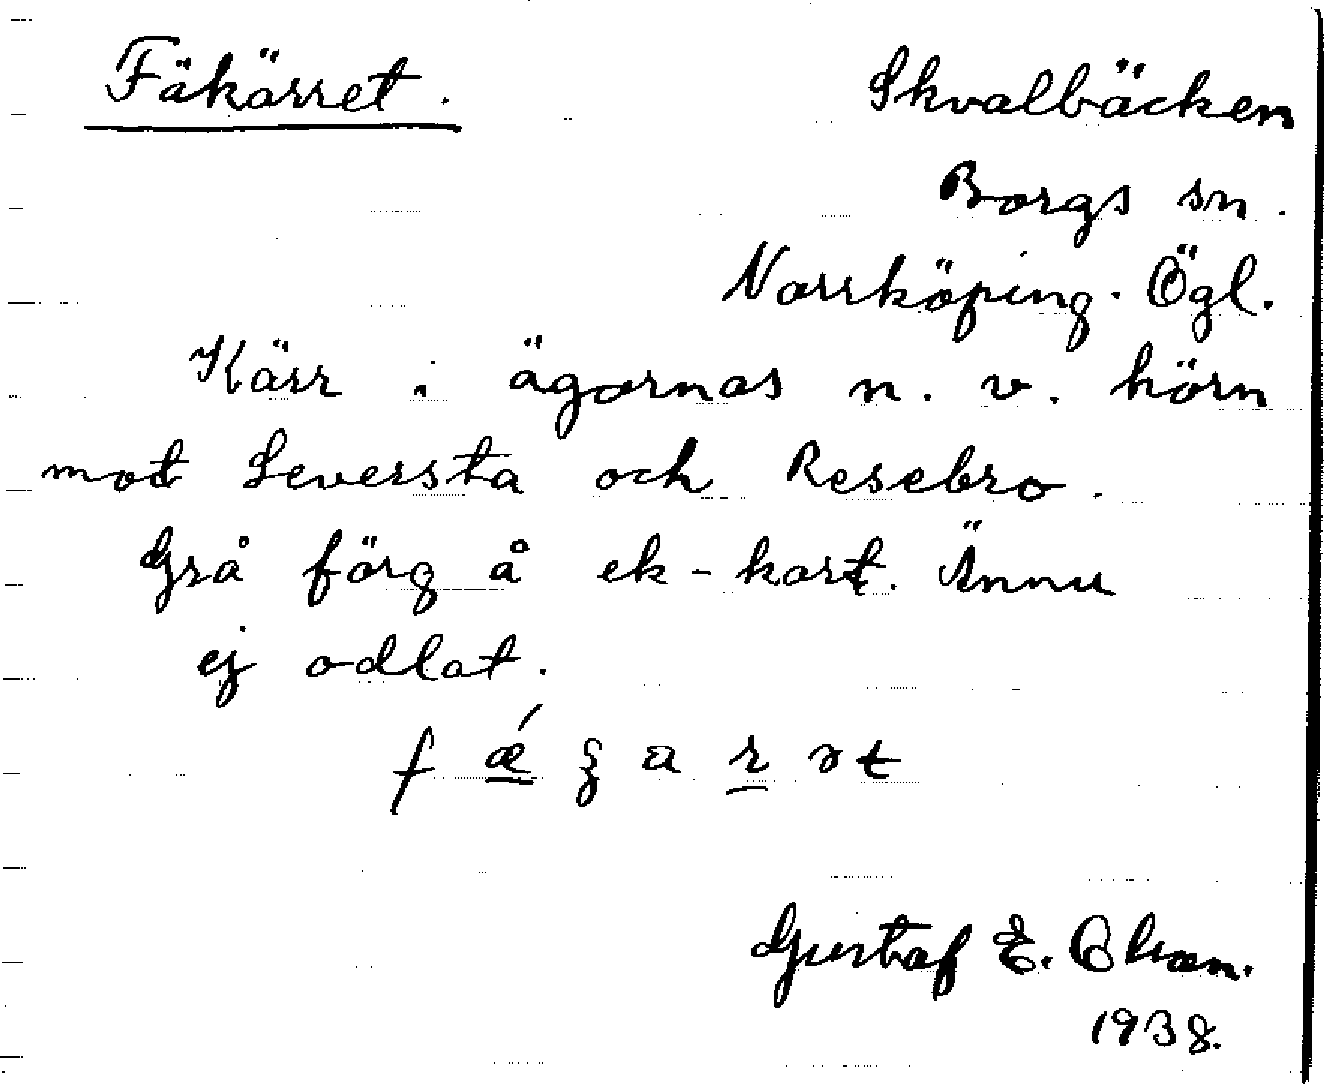 Fäkärret. Skvalbäcken
Borgs sn.
Norrköping. Ögl.
Kärr i ägornas n. v. hörn
mot Leversta och Resebro.
Grå färg å ek-kart. Ännu
ej odlat.
Gustaf E.
1938.